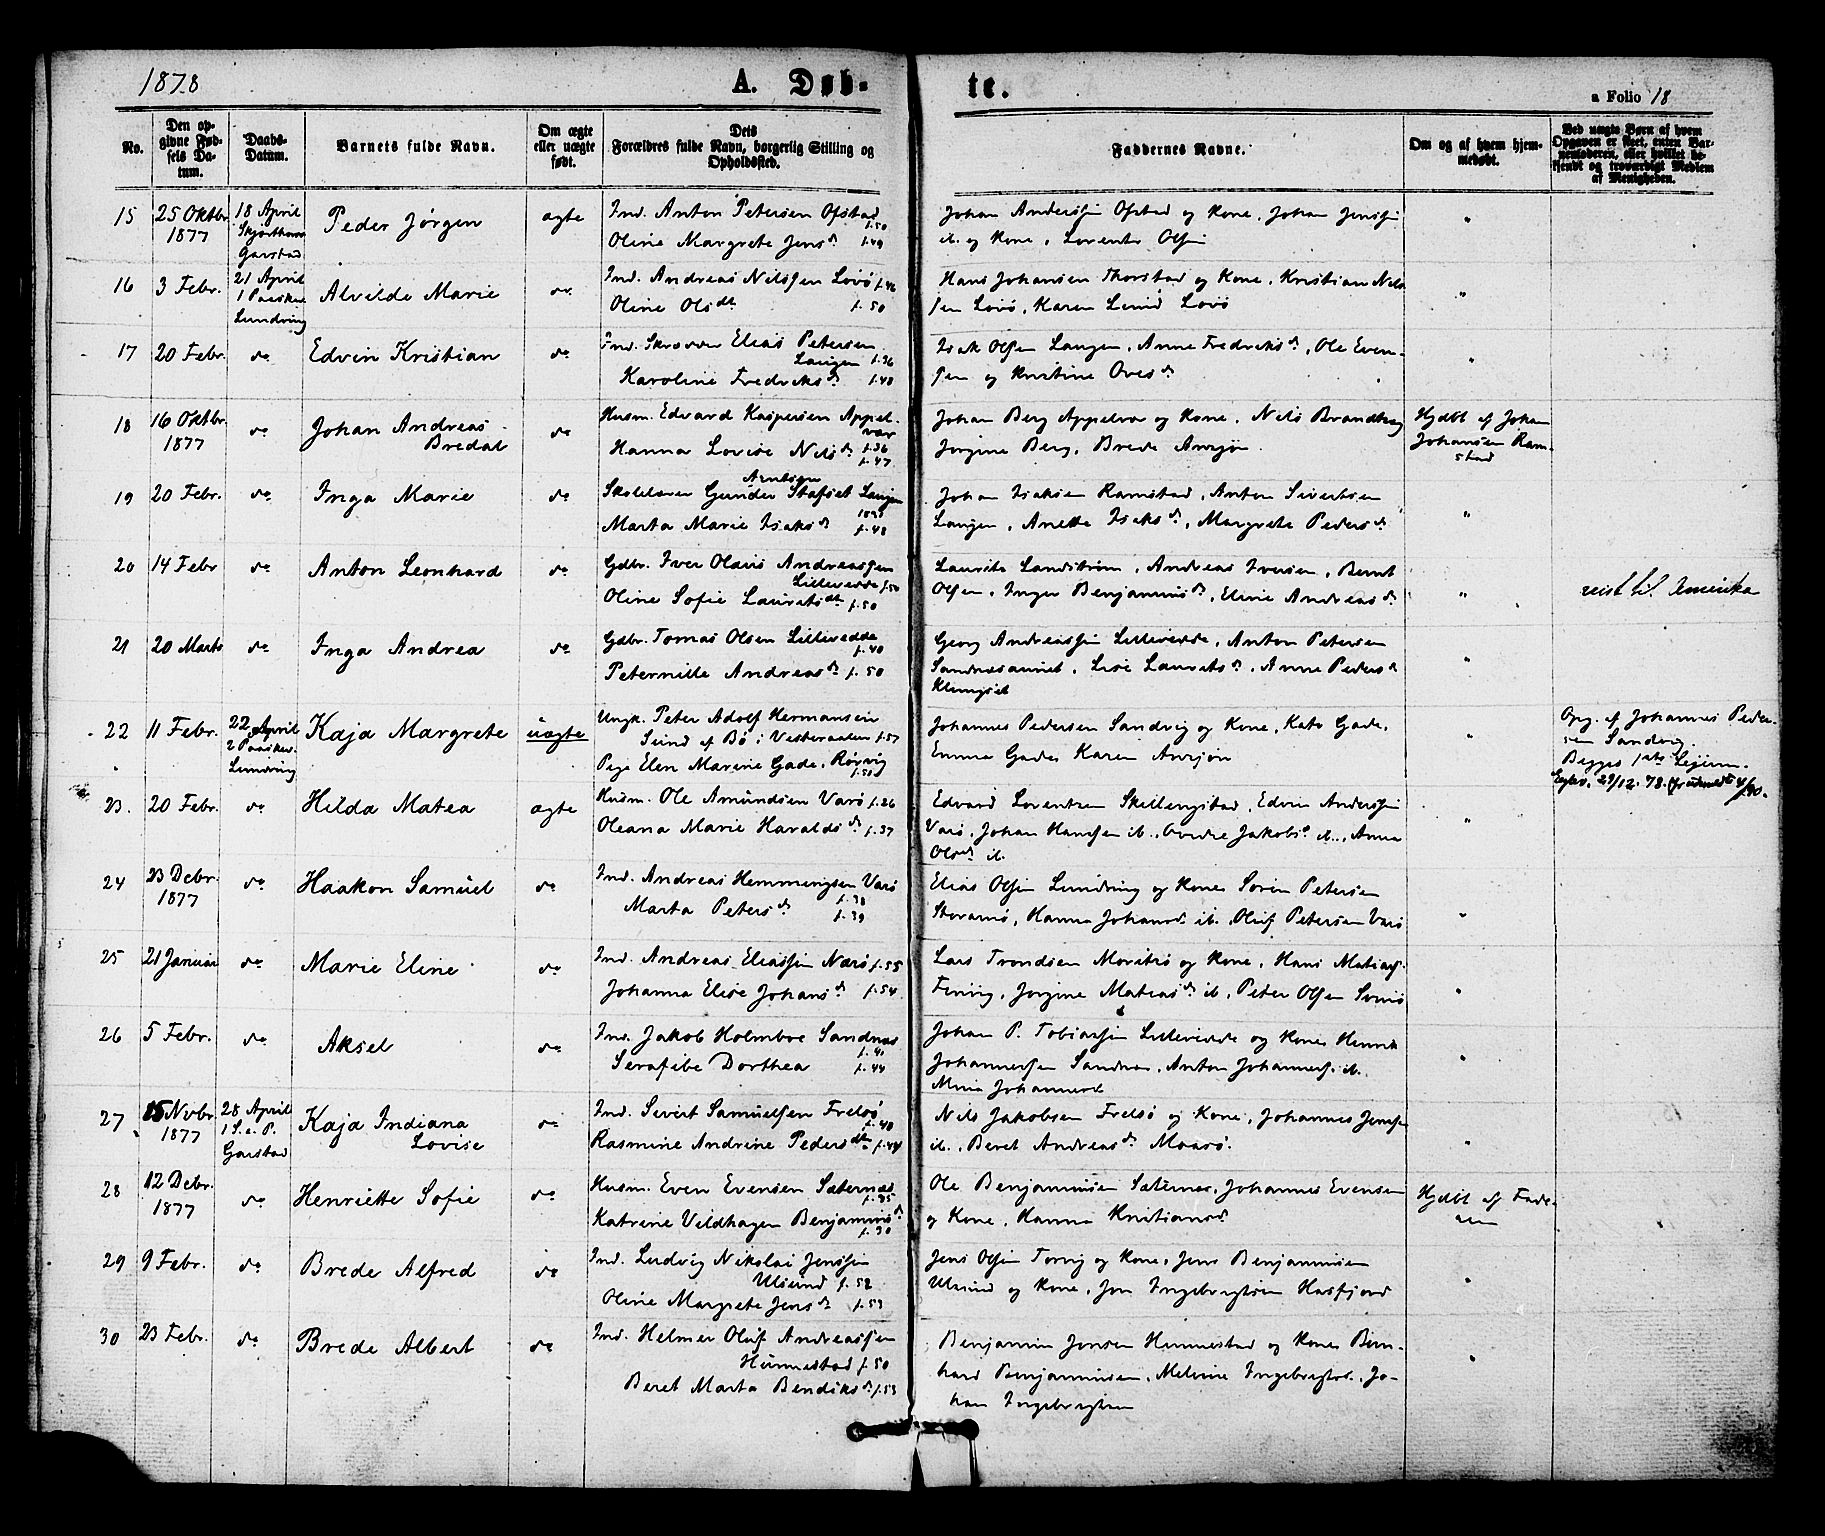 1878
A. Døb-
te.
a Folio 18
No.
Den op-
givne Fød-
sels Da-
tum.
Daabs-
Datum.
Barnets fulde Navn.
Om ægte
eller uægte
født.
Dets
Forældres fulde Navn, borgerlig Stilling og
Opholdssted.
Faddernes Navne.
Om og af hvem hjem-
medøbt.
Ved uægte Børn af hvem
Opgaven er skeet, enten Bar-
nemoderen, eller hvilket be-
kjendt og troværdigt Medlem
af Menigheden.
15
25 Oktbr.
1877
18 April
Garstad
Peder Jørgen
ægte
Ind. Anton Petersen Ofstad
f. 50
Oline Margrete Jensd. f. 49
Johan Anderssen Ofstad og Kone, Johan Jenssen
ib. og Kone, Lorents Olsen
"
16
3 Febr.
21 April
1 Paaskd.
Lundring
Alvilde Marie
do.
Ind. Andreas Nilssen Lovø f. 46
Oline Olsdt. f. 50
Hans Johansen Thorstad og Kone, Kristian Nils-
sen Lovø, Karen Lund Lovø
"
17
20 Febr.
do
Edvin Kristian
do
Ind. Skrædder Elias Petersen
Laugen f. 36
Karoline Fredriksd. f. 40
Isak Olsen Laugen, Anne Fredriksd., Ole Even-
sen og Kristine Ovesd.
"
18
16 Oktbr.
1877
do
Johan Andreas
Bredal
do
Husm. Edvard Kaspersen Appel-
vær
f. 36
Hanna Lovise Nilsd. f. 47
Johan Berg Appelvær og Kone, Nils Brandtzæg
Jørgine Berg, Brede Avrsjøn
Hjdbt af Johan
Johansen Ram-
stad
19
20 Febr.
do
Inga Marie
do
Arntsen
Skolelærer Gunder Stafset Laugen
Marta Marie Isaksd. f. 48
Johan Isaksen Ramstad, Anton Sivertsen
Laugen, Anette Isaksd., Margrete Pedersd.
"
20
14 Febr
do
Anton Leonhard
do
Gdbr. Iver Olaus Andreassen
Lillevedde f. 50
Oline Sofie Lauritsdt. f. 50
Laurits Landstrøm, Andreas Iversen, Bernt
Olsen, Inger Benjaminsd., Eline Andreasd.
"
reist til Amerika
21
20 Marts
do
Inga Andrea
do
Gdbr. Tomas Olsen Lillevedde
f. 40
Peternille Andreasd. f. 50
Georg Andreassen Lillevedde, Anton Petersen
Lise Lauritsd., Anne Pedersd.
"
22
11 Febr.
22 April
2 Paaskd.
Lundring
Kaja Margrete
uægte
Ungk. Peter Adolf Hermansen
Sund af Bø i Vesteraalen f. 57
Pige Elen Marine Gade, Rørvig
Johannes Pedersen Sandvig og Kone, Kato Gade,
Emma Gade, Karen Avrsjøn
"
Opg. af Johannes Peder-
sen Sandvig.
Begges 1ste Lejerm.
23.
20 Febr.
do
Hilda Matea
ægte
Husm. Ole Amundsen Varø f. 26
Oleana Marie Haraldsd. f. 37
Edvard Lorentzen Skillingstad, Edvin Anderssen
Varø, Johan Hanssen ib., Jakobsd. ib., Anna
Olsd. ib.
"
24
23 Debr.
1877
do
Haakon Samuel
do
Ind. Andreas Hemmingsen Varø
f. 38
Marta Petersd. f. 39
Elias Olsen Lundring og Kone, Søren Petersen
Storamø, Hanna Johansd. ib., Oluf Petersen Varø
"
25
21 Januar
do
Marie Eline
do
Ind. Andreas Eliassen Nærø f. 55
Johanna Elise Johansd. f. 54
Lars Trondsen Moritsø og Kone, Hans Matiass.
Finvig, Jørgine Mateasd. ib., Peter Olsen
"
26
5 Febr.
do
Aksel
do
Ind. Jakob Holmboe Sandnæs
f. 41
Serafibe Dorthea f. 44
Johan P. Tobiassen Lillevedde og Kone, Henrik
Johannessen Sandnæs, Anton Johanness. ib.
Mina Johannesd.
"
27
15 Novbr.
1877
28 April
1 S. e. P.
Garstad
Kaja Indiana
Lovise
do
Ind. Sivert Samuelsen Frelsø
f. 40
Rasmine Andrine Pedersdt. f. 44
Nils Jakobsen Frelsø og Kone, Johannes Jenssen
ib., Beret Andreasd. Maarø
"
28
12 Debr.
1877
do
Henriette Sofie
do
Husm. Even Evensen Sæternes
f. 35
Katrine Vildhagen Benjaminsd.
f. 30
Ole Benjaminsen Sæternes, Johannes Evensen
og Kone, Hanna Kristiansd.
Hjdbt af Fade-
ren
29
9 Febr.
do
Brede Alfred
do
Ind. Ludvig Nikolai Jenssen
Ulsund f. 52
Oline Margrete Jensd. f. 53
Jens Olsen Torvig og Kone, Jens Benjaminsen
Ulsund og Kone, Jon Ingebrigtsen Hasfjord
"
30
23 Febr.
do
Brede Albert
do
Ind. Helmer Oluf Andreassen
Hunnestad f. 50
Beret Marta Bendiksd. f. 53
Benjamin Jonsen Hunnestad og Kone, Bern-
hard Benjaminsen, Meline Ingebrigtsd., Jo-
han Ingebrigtsen
"